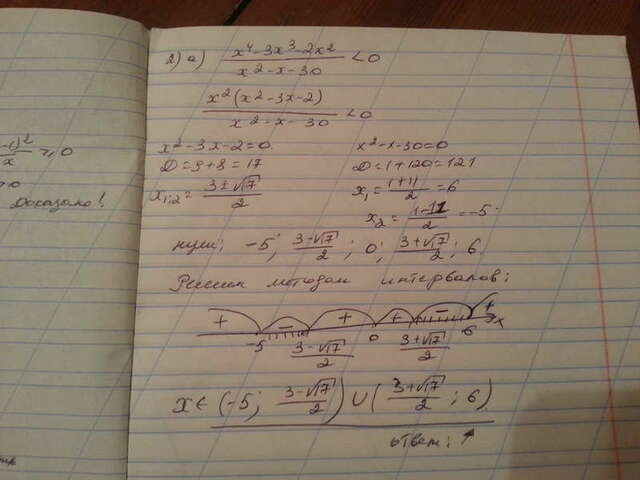 -1)²/x ⩾ 0
>0
Доказано!
2) a) (x⁴-3x³-2x²)/(x²-x-30) < 0
x²(x²-3x-2)/(x²-x-30) < 0
x²-3x-2=0. x²-x-30=0
D=9+8=17 D=1+120=121
x₁,₂ = (3±√17)/2 x₁ = (1+11)/2 = 6
x₂ = (1-11)/2 = -5
нули: -5; (3-√17)/2; 0; (3+√17)/2; 6.
Решим методом интервалов:
+ - + + - + x
-5 (3-√17)/2 0 (3+√17)/2 6
x ∈ (-5; (3-√17)/2) ∪ ((3+√17)/2; 6)
ответ: ↑